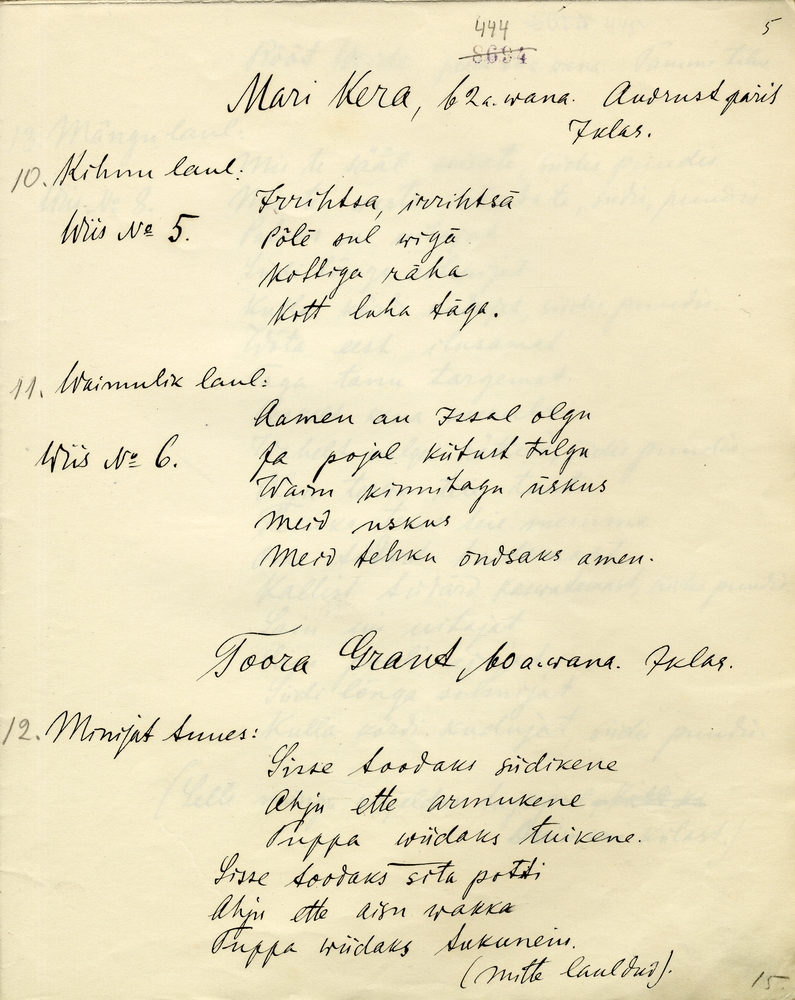 5
444
8694
Mari Kera, 62 a. wana. Audrust pärit
Jklas.
10. Kihnu laul:
Irrihtsa, irrihtsä
Wiis № 5. Põlê sul wigä
Kottiga räha
Kott luha täga.
11. Waimulik laul:
Aamen au Issal olgu
Wiis № 6. Ja pojal kiitust tulgu
Waim kinnitagu üskus
Meid uskus
Meid tehku õndsaks amen.
Toora Grant, 60 a. wana. Jklas.
12. Minijat tuues:
Sisse toodaks siidikene
Ahju ette armukene
Tuppa wiidaks tuikene.
Sisse toodaks sita potti
Ahju ette aisu wakka
Tuppa wiidaks
(mitte lauldud).
15